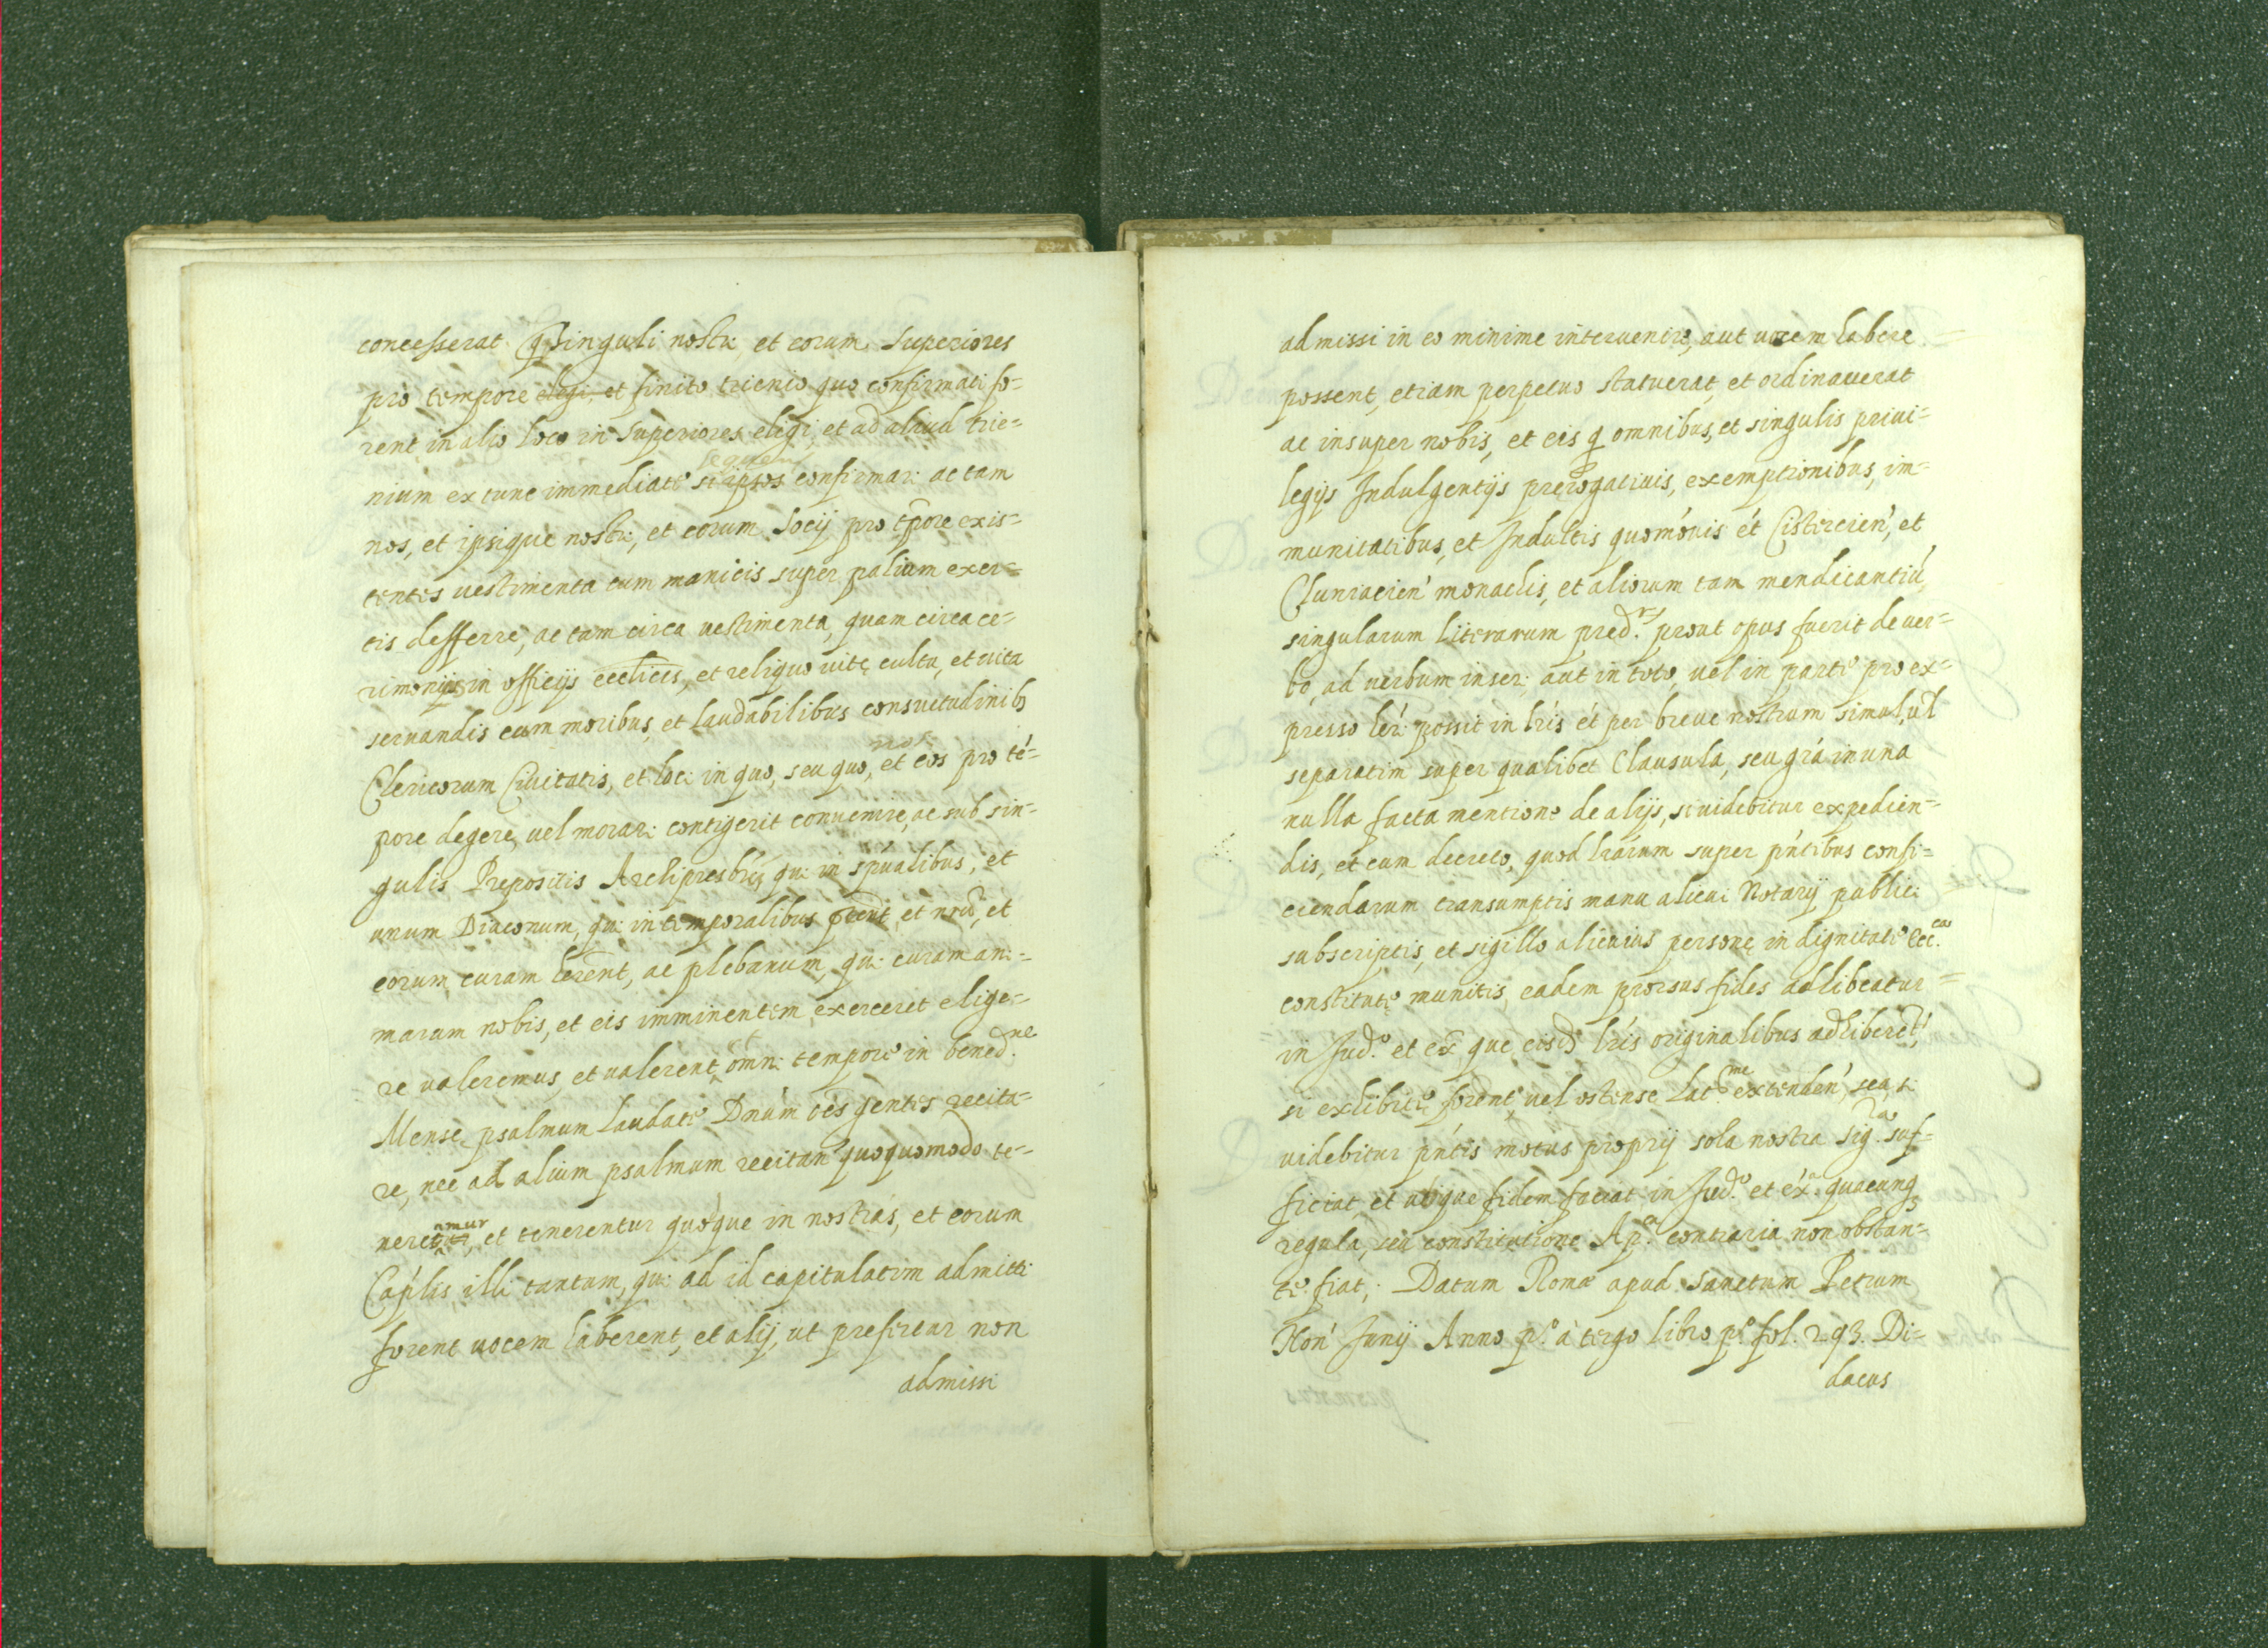 concesserat Q singuli nostri et eorum Superiores
pro tempore elegi, et finito trienio quo confirmati fo=
rent in alio loco in Superiores eligi, et ad aliud trie=
sequen
nium ex tunc immediate si ipsos confirmari ac tam
nos, et ipsique nostri, et eorum Socij pro tpore exis=
tentes uestimenta cum manicis super palium exer=
tis defferre, ac tam circa uestimenta, quam circa ce=
rimonijs in officijs ecclicis, et reliquo uite cultu, et uita
seruandis cum moribus, et laudabilibus consuetudinib3
nos
Clericorum Ciuitatis, et loci in quo, seu quo, et eos pro té=
pore degere, uel morari contigerit conuenire, ac sub sin=
gulis Prepositis Archipresbris qui in spualibus, et
unum Diaconum, qui in temporalibus preent, et nrd, et
eorum curam herent, ac plebanum, qui curam ani=
marum nobis, et eis imminentem exerceret elige=
re ualeremus, et ualerent omni tempore in bened.ne
Mense psalmum laudate Dnum oes gentes recita=
re, nec ad alium psalmum recitan quoquomodo te=
amur
neretur, et tenerentur quodque in nostras, et eorum
Caplis illi tantum, qui ad id capitulatim admitti
forent uocem haberent, et alij, ut prefertur non
admissi
admissi in eo minime interuenire, aut uocem habere
possent, etiam perpetuo statuerat, et ordinauerat
ac insuper nobis, et eis q omnibus, et singulis priui=
legijs Indulgentijs prerogatiuis, exemptionibus, im=
munitatibus, et Indultis quomouis ét Cistercien', et
Cluniacien' monachis, et aliorum tam mendicantiú
singularum Literarum pred.rs prout opus fuerit de uer=
bo, ad uerbum inseri aut in toto, uel in parte pro ex=
presso heri possit in lris ét per breue nostrum simul, ul
separatim super qualibet Clausula, seu gra in una
nulla facta mentione de alijs, si uidebitur expedien=
dis, et cum decreto, quod lrarum super pntibus confi=
ciendarum transumptis manu alicui Notarij publici
subscriptis, et sigillo alicuius persone in dignitate Ecc.ca
constitute munitis, eadem prorsus fides adhibeatur
in Jud.o et ex que eisd lris originalibus adhiberet,
si exhibite forent, uel ostense Lat.me extenden', seu, si
uidebitur pntis motus proprij sola nostra sig.ra suf=
ficiat, et ubique fidem faciat in Jud.o et éx.a quacunq3
regula, seu constitutione Ap.ca contraria non obstan=
te fiat, Datum Rome apud Sanctum Petrum
Non' Junij Anno p.o à tergo libro p.o fol. 293. Di=
dacus